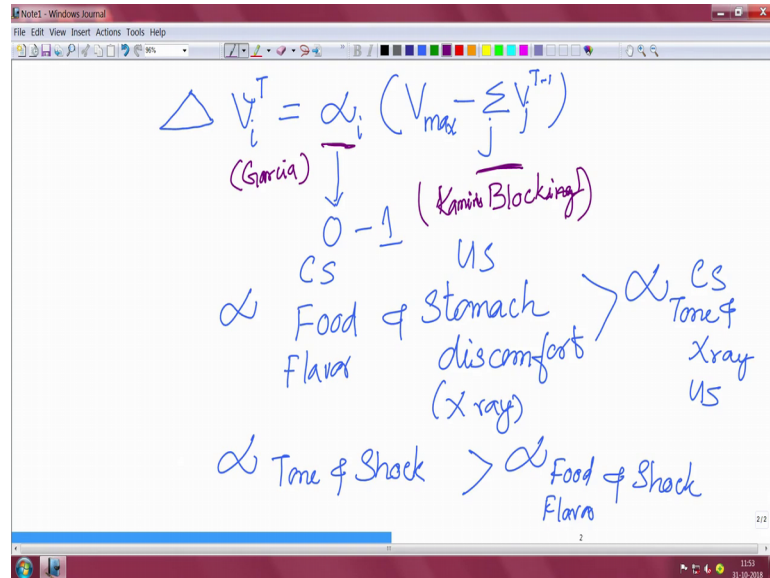 Note1 - Windows Journal
File Edit View Insert Actions Tools Help
96%
B I
Δ V_i^T = α_i (V_max - Σ_j V_j^{T-1})
(Garcia)
(Kamin Blocking)
0 - 1
CS US
α Food & Stomach > α CS
Flavor discomfort Tone &
(X ray) Xray
US
α Tone & Shock > α Food & Shock
Flavor
2/2
2
11:53
31-10-2018